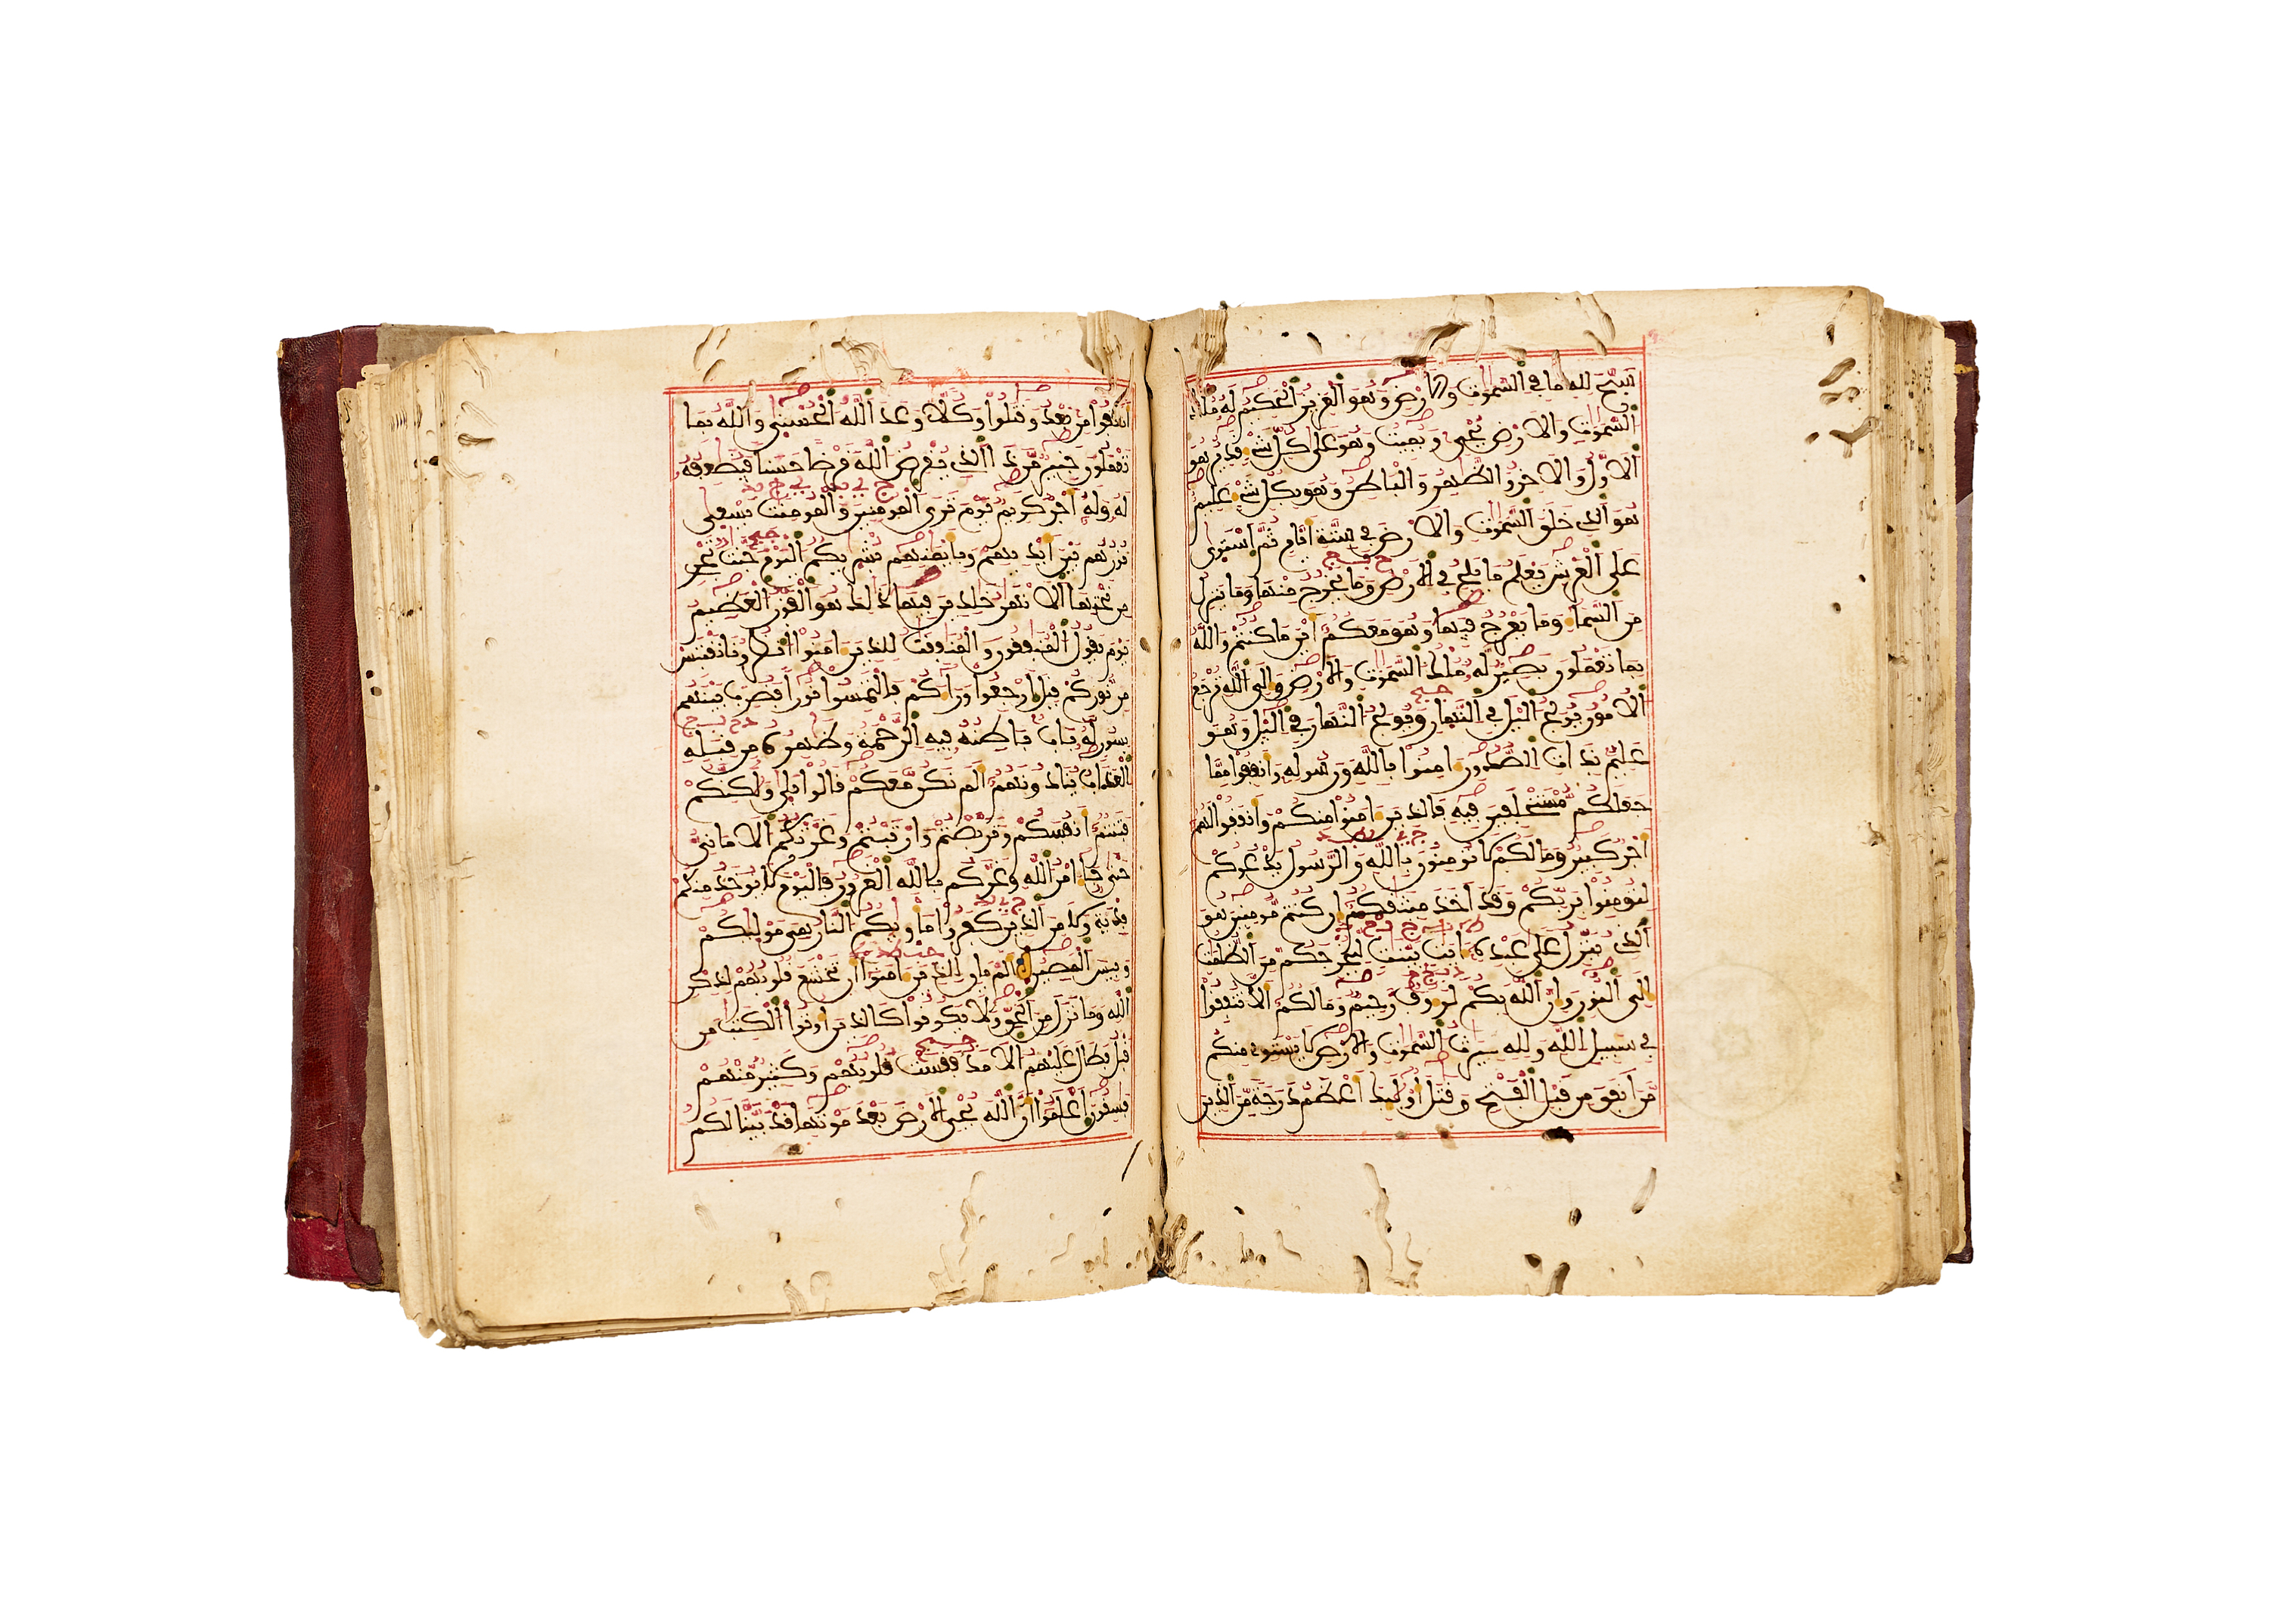 سبح لله ما في السموت والارض وهو العزيز الحكيم له ملك
السموت والارض يحي ويميت وهو على كل شيء قدير هو
الاول والاخر والظهر والباطن وهو بكل شيء عليم
هو الذي خلق السموت والارض في ستة ايام ثم استوى
على العرش يعلم ما يلج في الارض وما يخرج منها وما ينزل
من السماء وما يعرج فيها وهو معكم اين ما كنتم والله
بما تعملون بصير له ملك السموت والارض والى الله ترجع
الامور يولج اليل في النهار ويولج النهار في اليل وهو
عليم بذات الصدور امنوا بالله ورسوله وانفقوا مما
جعلكم مستخلفين فيه فالذين امنوا منكم وانفقوا لهم
اجر كبير وما لكم لا تومنون بالله والرسول يدعوكم
لتومنوا بربكم وقد اخذ ميثقكم ان كنتم مومنين هو
الذي ينزل على عبده ايت بينت ليخرجكم من الظلمت
الى النور وان الله بكم لرءوف رحيم وما لكم الا تنفقوا
في سبيل الله ولله ميرث السموت والارض لا يستوي منكم
من انفق من قبل الفتح وقتل اولئك اعظم درجة من الذين
انفقوا من بعد وقتلوا وكلا وعد الله الحسنى والله بما
تعملون خبير من ذا الذي يقرض الله قرضا حسنا فيضعفه
له وله اجر كريم يوم ترى المومنين والمومنت يسعى
نورهم بين ايديهم وبايمنهم بشريكم اليوم جنت تجري
من تحتها الانهر خلدين فيها ذلك هو الفوز العظيم
يوم يقول المنفقون والمنفقت للذين امنوا انظرونا نقتبس
من نوركم قيل ارجعوا وراءكم فالتمسوا نورا فضرب بينهم
بسور له باب باطنه فيه الرحمة وظهره من قبله
العذاب ينادونهم الم نكن معكم قالوا بلى ولكنكم
فتنتم انفسكم وتربصتم وارتبتم وغرتكم الاماني
حتى جاء امر الله وغركم بالله الغرور فاليوم لا يوخذ منكم
فدية ولا من الذين كفروا ماويكم النار هي موليكم
وبيس المصير الم يان للذين امنوا ان تخشع قلوبهم لذكر
الله وما نزل من الحق ولا يكونوا كالذين اوتوا الكتب من
قبل فطال عليهم الامد فقست قلوبهم وكثير منهم
فسقون اعلموا ان الله يحي الارض بعد موتها قد بينا لكم